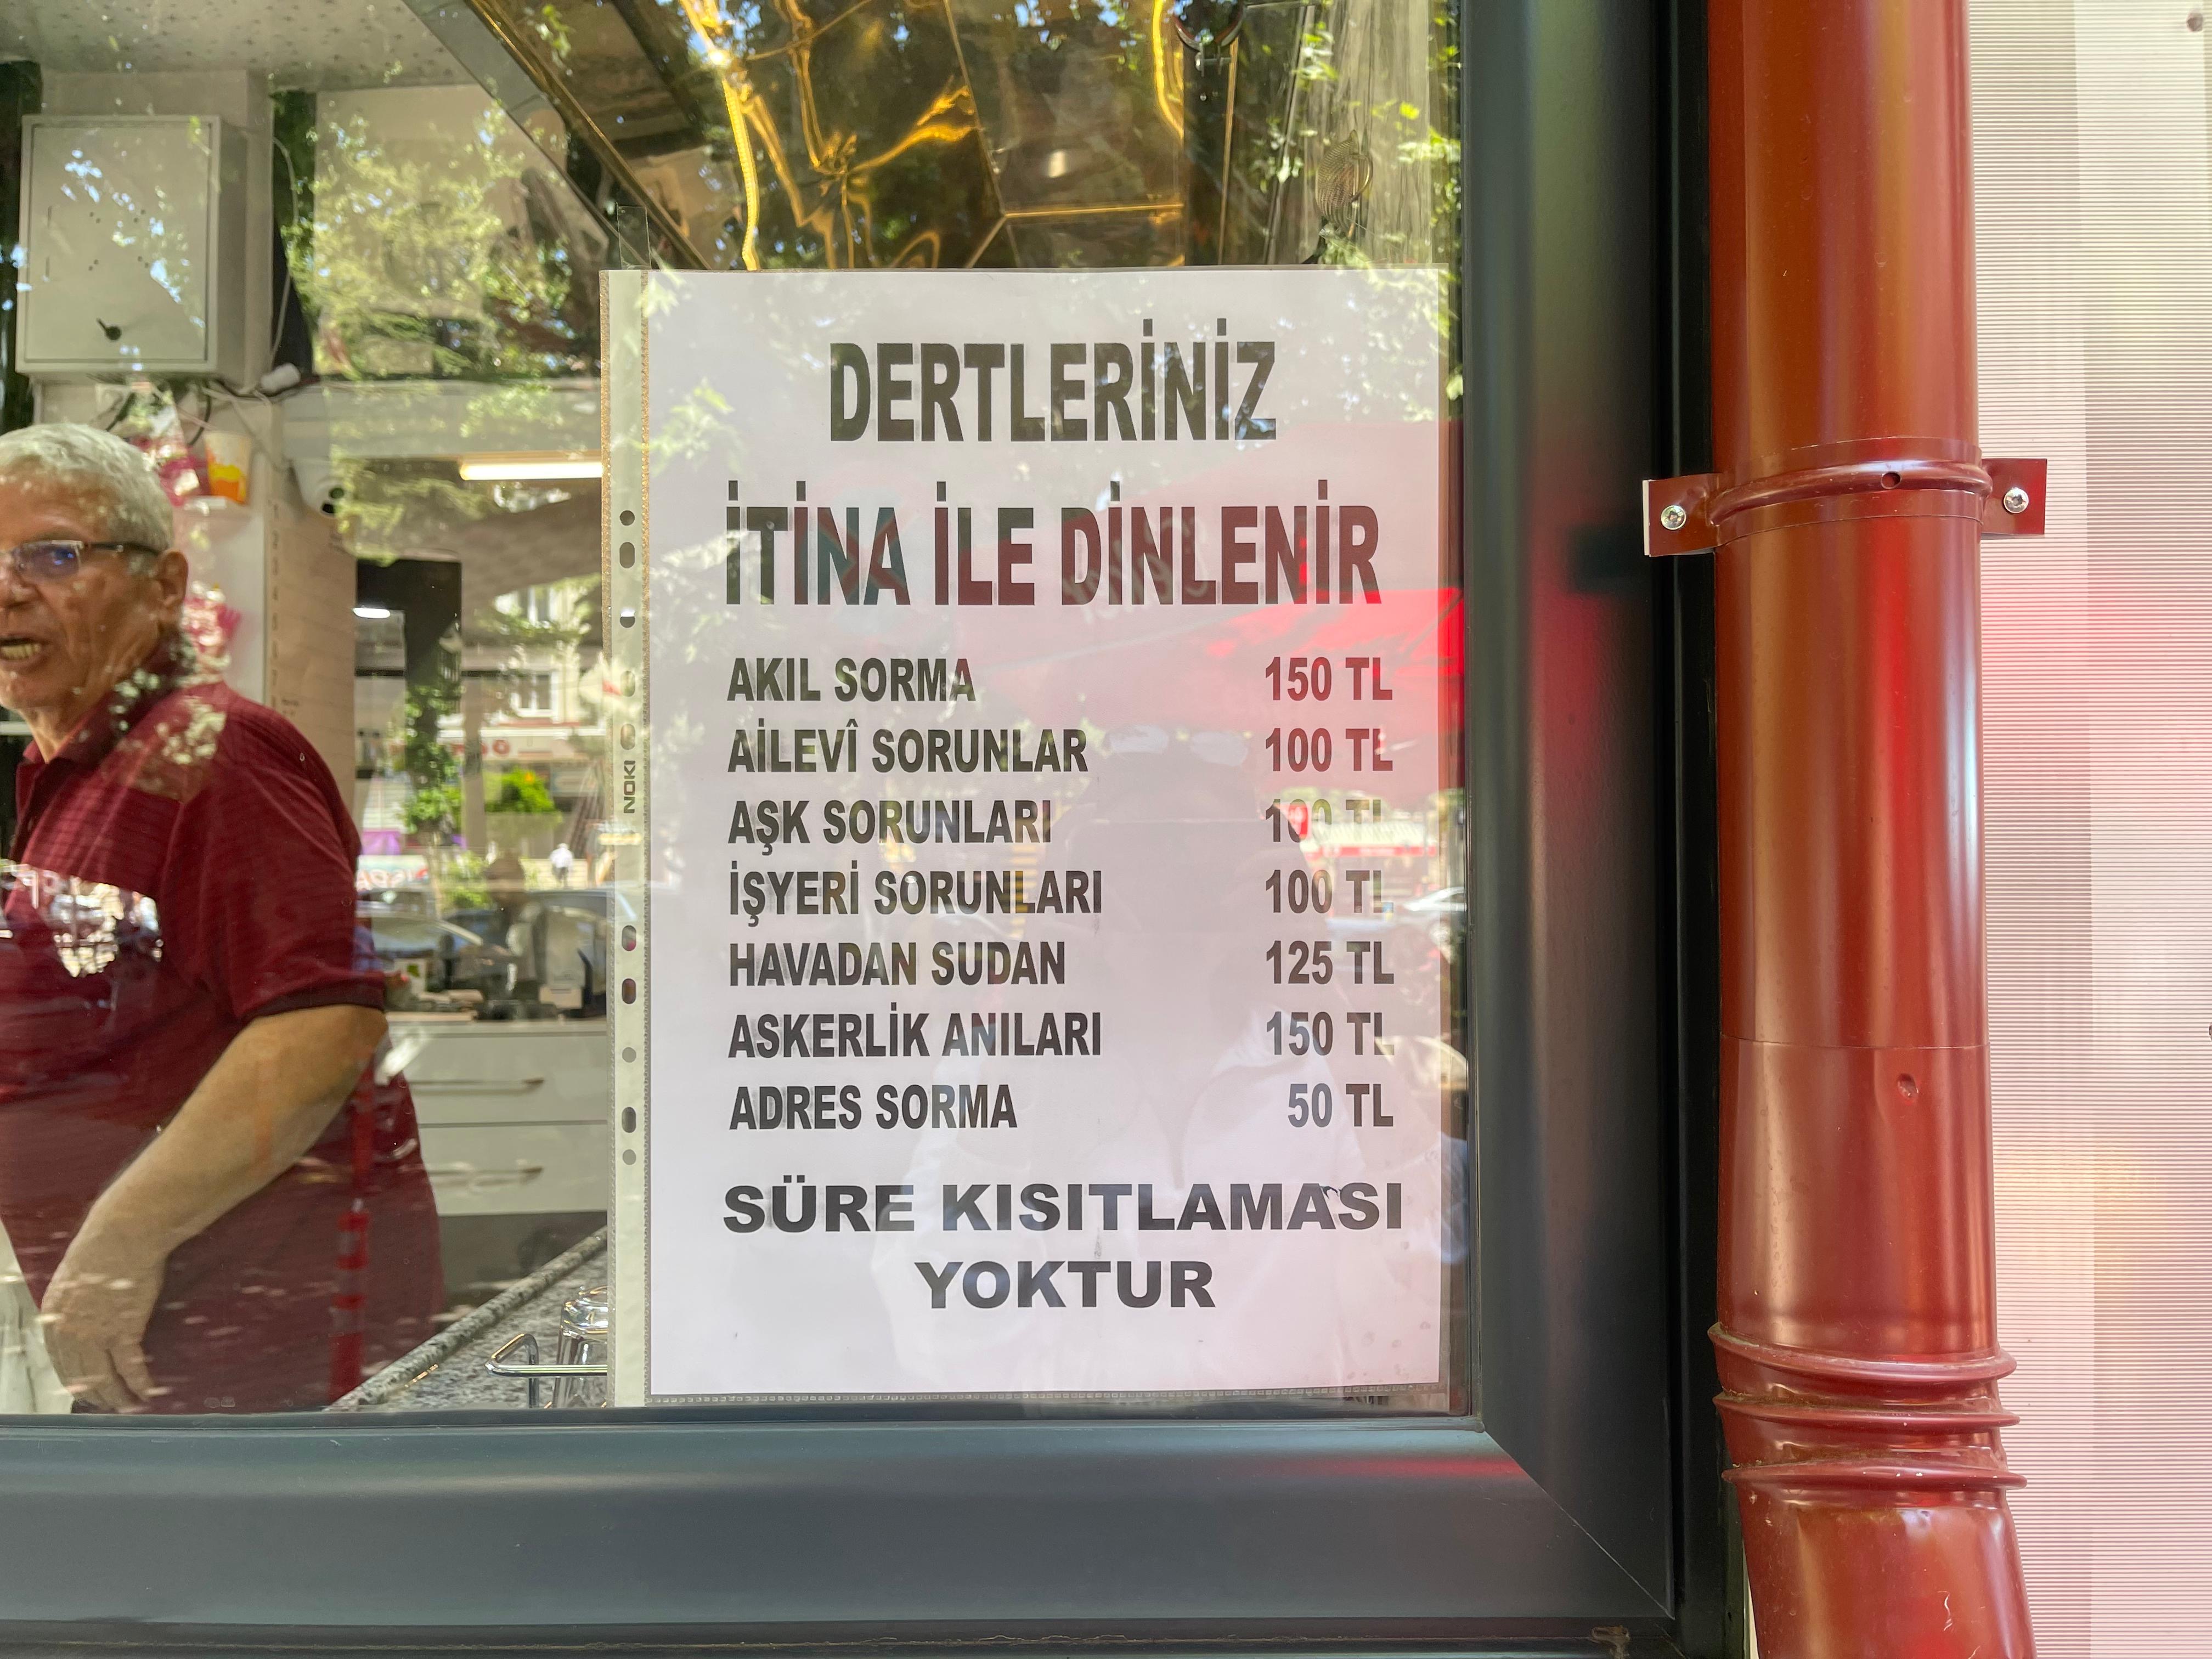 DERTLERİNİZ
İTİNA İLE DİNLENİR
AKIL SORMA 150 TL
AİLEVÎ SORUNLAR 100 TL
AŞK SORUNLARI 100 TL
İŞYERİ SORUNLARI 100 TL
HAVADAN SUDAN 125 TL
ASKERLİK ANILARI 150 TL
ADRES SORMA 50 TL
SÜRE KISITLAMASI
YOKTUR
NOKI